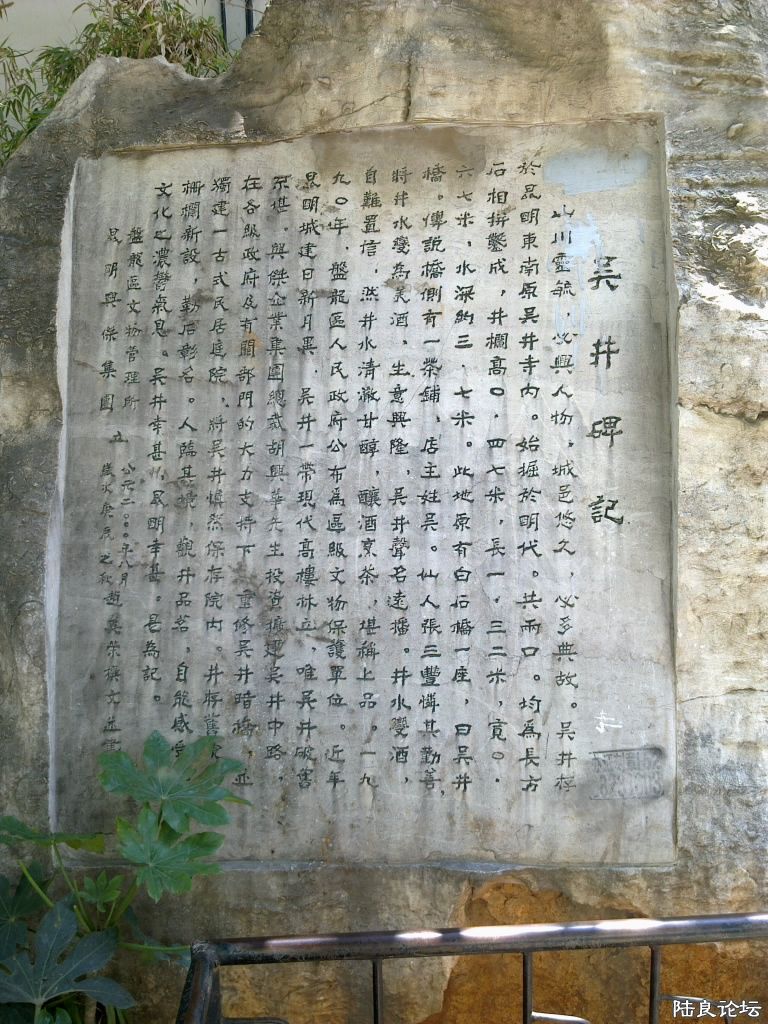 吴井碑記
山川靈毓，必興人物。城邑悠久，必多典故。吴井存
於昆明東南原吴井寺内。始掘於明代。共兩口。均為長方
石相拼鑿成，井欄高〇．四七米，長一．三二米，寬〇．
六七米，水深約三．七米。此地原有白石橋一座，曰吴井
橋。傳説橋側有一茶鋪，店主姓吴。仙人張三豐憐其勤善，
將井水變為美酒，生意興隆，吴井聲名遠播。井水變酒，
自難置信，然井水清澈甘醇，釀酒烹茶，堪稱上品。一九
九〇年，盤龍區人民政府公布為區級文物保護單位。近年
昆明城建日新月異，吴井一帶現代高樓林立，唯吴井破舊
不堪。興傑企業集團總裁胡興華先生投資擴建吴井中路，
在各級政府及有關部門的大力支持下，重修吴井暗橋，並
獨建一古式民居庭院，將吴井慎然保存院内。井存舊
栅欄新設，勒石彰名。人臨其境，觀井品茗，自能感受
文化之濃鬱氣息。吴井幸甚，昆明幸甚。是為記。
盤龍區文物管理所
昆明興傑集團 立
公元二〇〇〇年八月
歲次庚辰之秋趙 榮撰文並書
陆良论坛